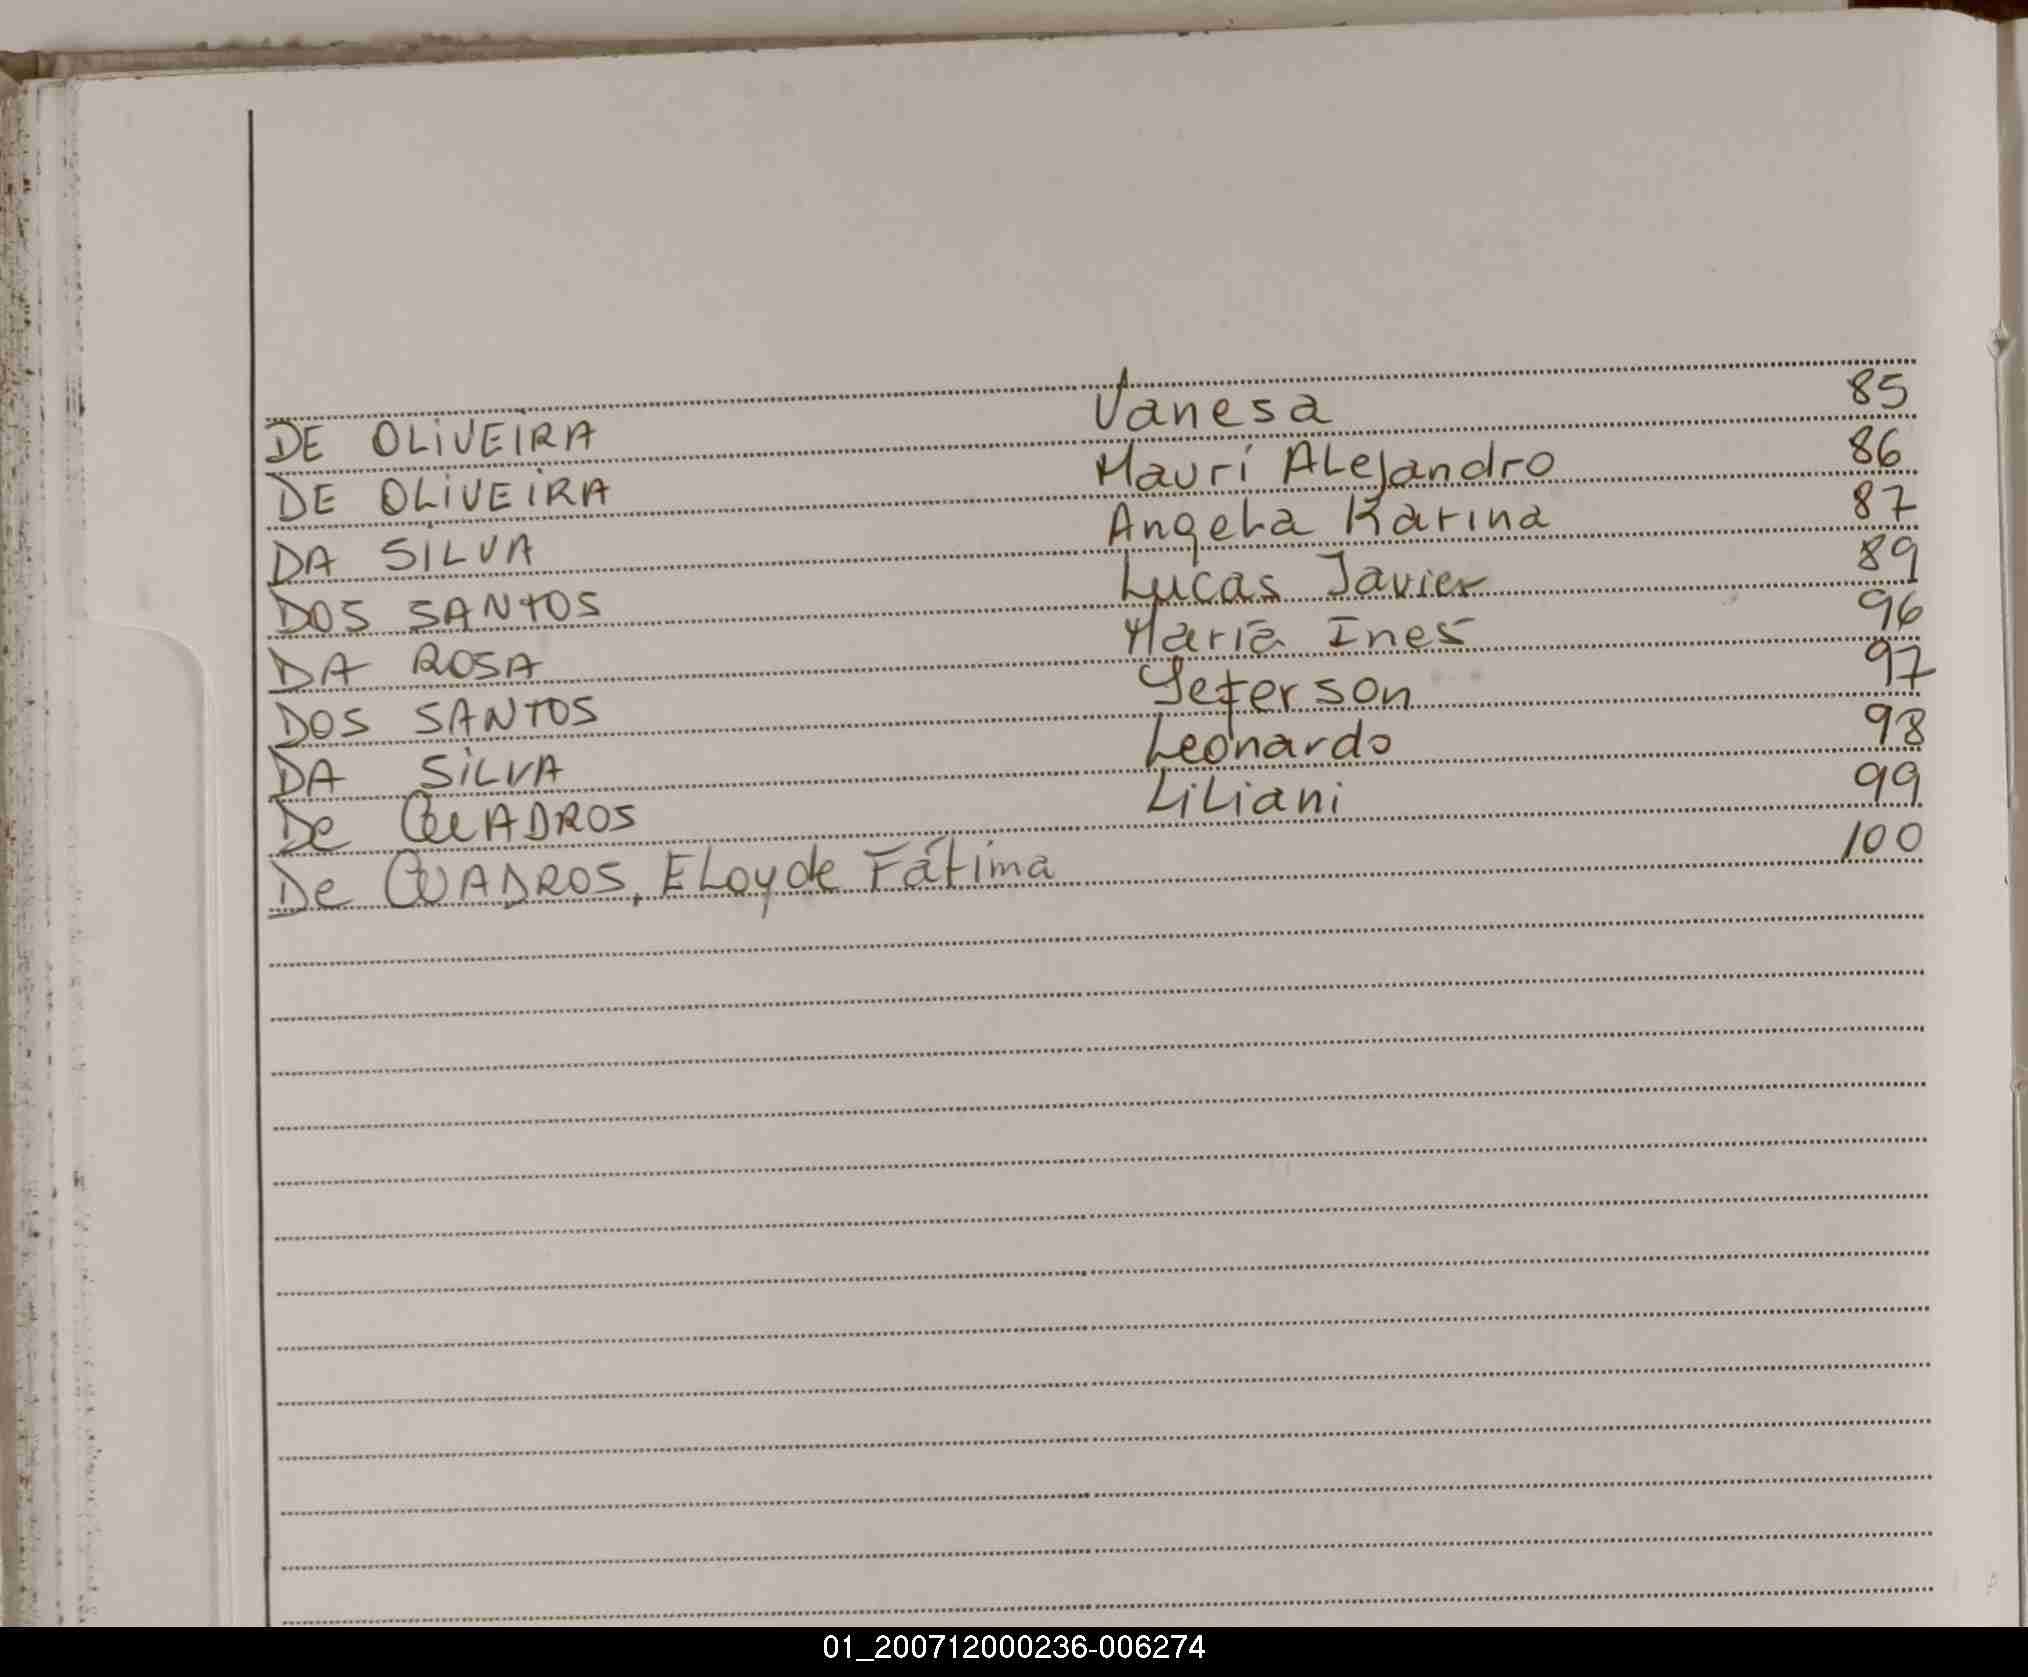 DE OLIVEIRA Vanesa 85
DE OLIVEIRA Maurí Alejandro 86
DA SILVA Angela Karina 87
DOS SANTOS Lucas Javier 89
DA ROSA María Ines 96
DOS SANTOS Jeferson 97
DA SILVA Leonardo 98
De QUADROS Liliani 99
De QUADROS, Eloy de Fátima 100
01_200712000236-006274